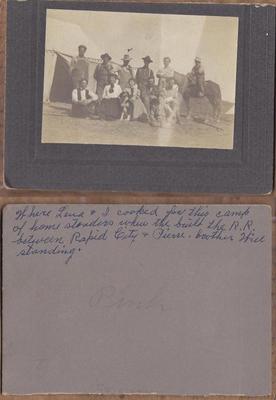 Where Lena & I cooked for this camp
of home steaders when the built the R.R.
between Rapid City & Pierre. brother Will
standing.